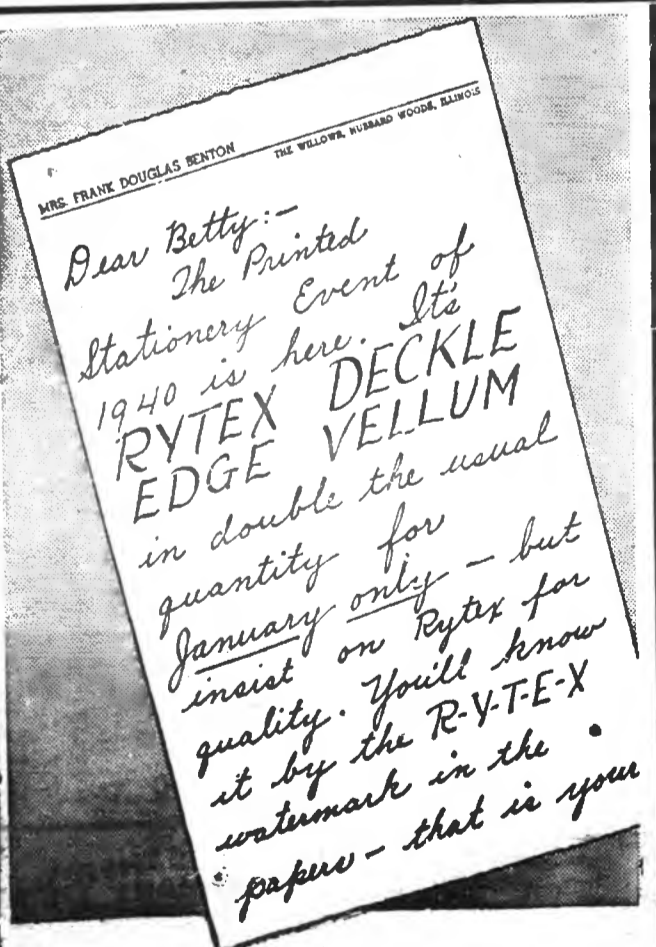 MRS. FRANK DOUGLAS BENTON
THE WILLOWS, HUBBARD WOODS, ILLINOIS
Dear Betty:—
The Printed
Stationery Event of
1940 is here. It's
RYTEX DECKLE
EDGE VELLUM
in double the usual
quantity for
January only — but
insist on Rytex for
quality. You'll know
it by the R-Y-T-E-X
watermark in the
papers — that is your